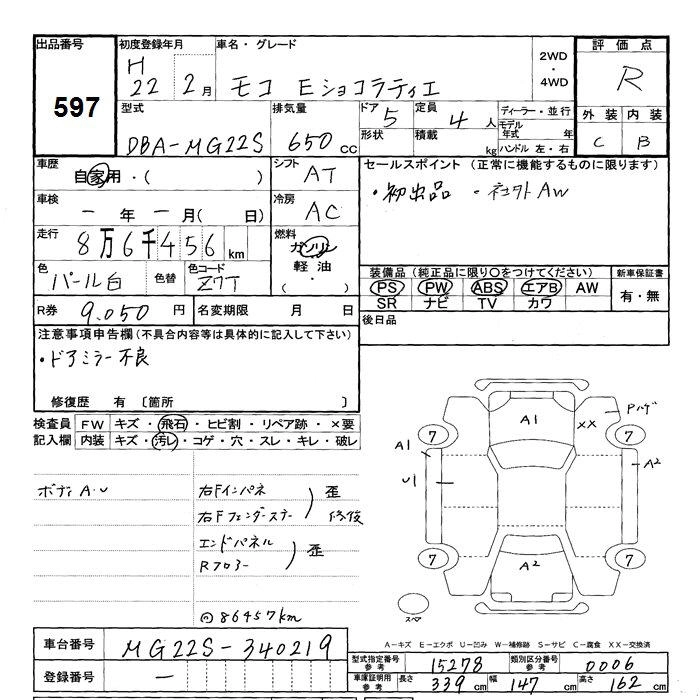 出品番号
597
初度登録年月
H
22 年 2月
車名・グレード
モコ Eショコラティエ
2WD
・
4WD
評価点
R
外装 内装
C B
型式
DBA-MG22S
排気量
650 cc
ドア 5
形状
定員 4 人
積載 kg
ディーラー・並行
モデル
年式 年
ハンドル 左・右
車歴
自家用・( )
シフト
AT
セールスポイント (正常に機能するものに限ります)
・初出品 ・社外AW
車検
ー 年 ー 月( 日)
冷房
AC
走行
8万6千456km
燃料
ガソリン
軽油
・( )
色
パール白
色替
色コード
Z7T
装備品 (純正品に限り○をつけてください)
PS PW ABS エアB AW
SR ナビ TV カワ
新車保証書
有・無
R券 9.050 円
名変期限 月 日
後日品
注意事項申告欄 (不具合内容等は具体的に記入して下さい)
・ドアミラー不良
修復歴 有 〔箇所 〕
検査員
記入欄
FW キズ・飛石・ヒビ割・リペア跡・×要
内装 キズ・汚レ・コゲ・穴・スレ・キレ・破レ
ボディ A・U
右Fインパネ
右Fフェンダーステー
歪
修復
エンドパネル
Rフロアー
歪
86457km
A1
XX
Pハゲ
7
7
A1
U1
A2
7
7
A2
スペア
A-キズ E-エクボ U-凹み W-補修跡 S-サビ C-腐食 XX-交換済
車台番号
MG22S-340219
登録番号
ー
型式指定番号
参考
15278
類別区分番号
参考
0006
車庫証明用
参考
長さ 339 cm
幅 147 cm
高さ 162 cm